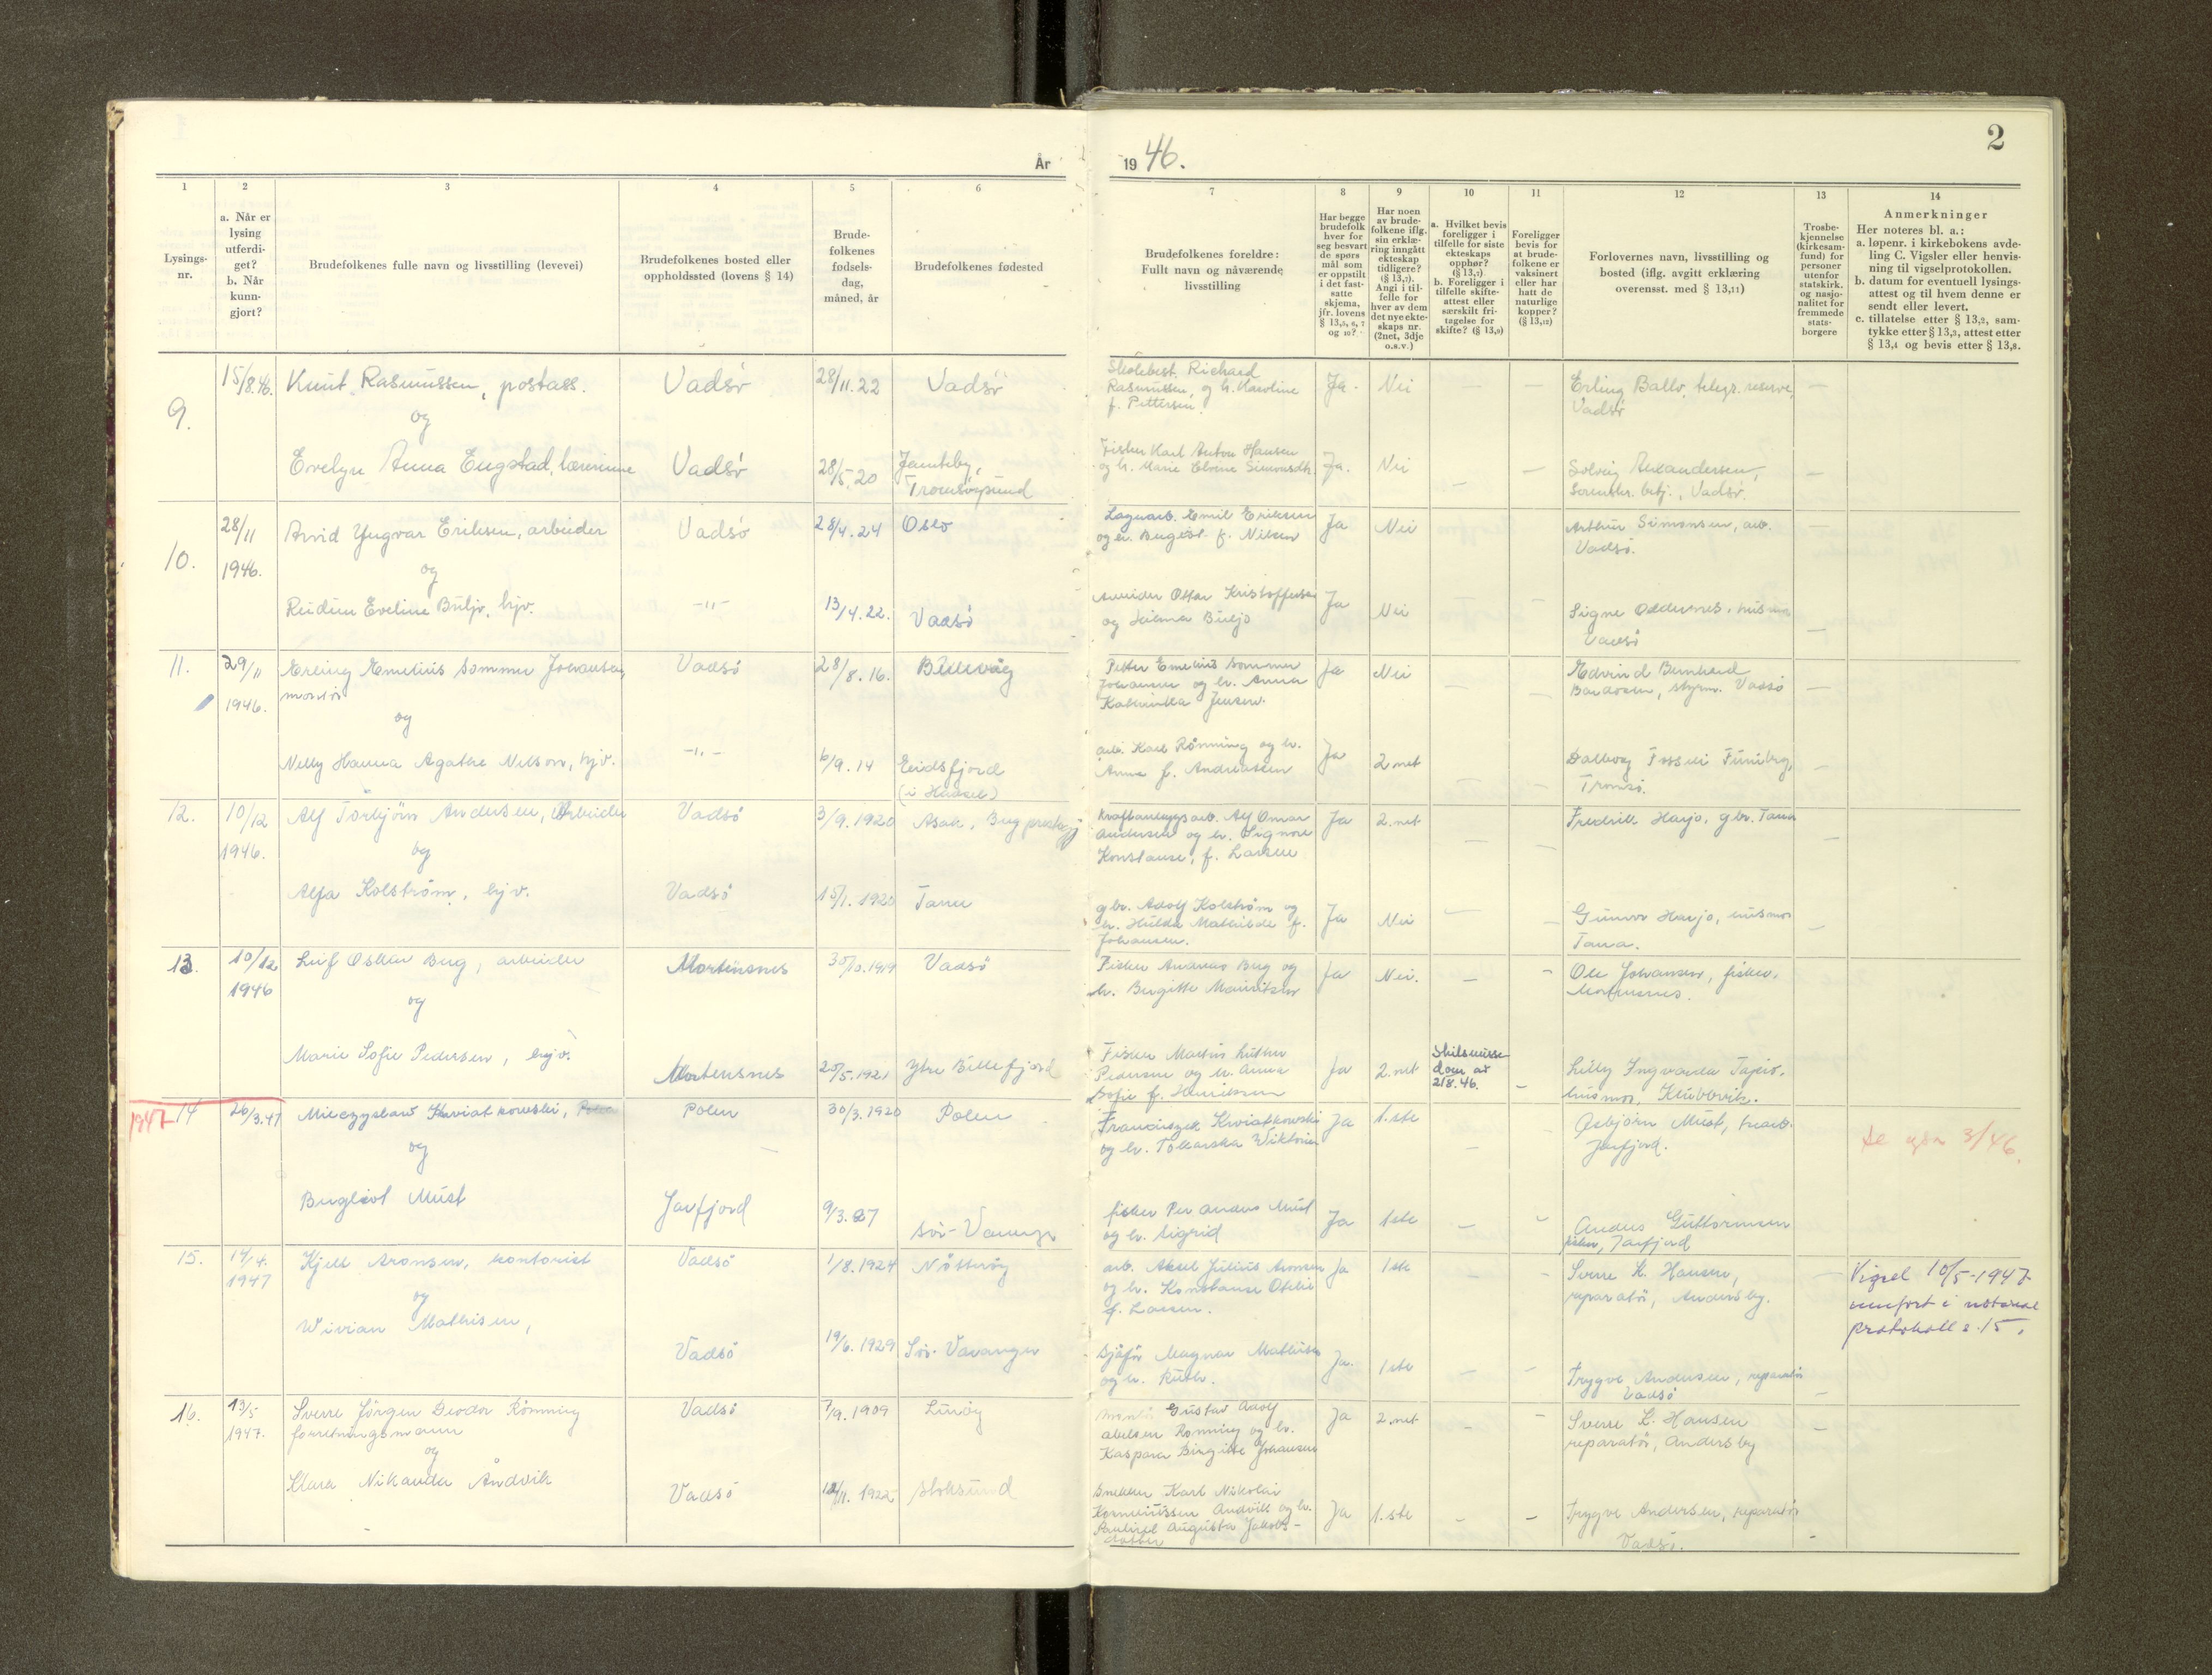 År
1946.
2
1
2
3
4
5
6
7
8
9
10
11
12
13
14
Lysings-
nr.
a. Når er
lysing
utferdi-
get?
b. Når
kunn-
gjort?
Brudefolkenes fulle navn og livsstilling (levevei)
Brudefolkenes bosted eller
oppholdssted (lovens § 14)
Brude-
folkenes
fødsels-
dag,
måned, år
Brudefolkenes fødested
Brudefolkenes foreldre:
Fullt navn og nåværende
livsstilling
Har begge
brudefolk
hver for
seg besvart
de spørs
mål som
er oppstilt
i det fast-
satte
skjema,
jfr. lovens
§ 13,5, 6, 7
og 10?
Har noen
av brude-
folkene iflg.
sin erklæ-
ring inngått
ekteskap
tidligere?
(§ 13,7).
Angi i til-
felle for
hver av dem
det nye ekte-
skaps nr.
(2net, 3dje
o.s.v.)
a. Hvilket bevis
foreligger i
tilfelle for siste
ekteskaps
opphør?
(§ 13,7)
b. Foreligger i
tilfelle skifte-
attest eller
særskilt fri-
tagelse for
skifte? (§ 13,9)
Foreligger
bevis for
at brude-
folkene er
vaksinert
eller har
hatt de
naturlige
kopper?
(§ 13,12)
Forlovernes navn, livsstilling og
bosted (iflg. avgitt erklæring
overensst. med § 13,11)
Trosbe-
kjennelse
(kirkesam-
fund) for
personer
utenfor
statskirk.
og nasjo-
nalitet for
fremmede
stats-
borgere
Anmerkninger
Her noteres bl. a.:
a. løpenr. i kirkebokens avde-
ling C. Vigsler eller henvis-
ning til vigselprotokollen.
b. datum for eventuell lysings-
attest og til hvem denne er
sendt eller levert.
c. tillatelse etter § 13,2, sam-
tykke etter § 13,3, attest etter
§ 13,4 og bevis etter § 13,8.
9.
15/8.46.
Knut Rasmussen, postass.
Vadsø
28/11.22
Vadsø
Richard
Rasmussen, og h. Karoline
f. Pettersen
Ja.
Nei
—
—
Erling Ballo, telegr. reserve,
Vadsø
—
og
Evelyn Anna Engstad, lærerinne
Vadsø
28/5.20
Tromsøysund
Fisker Karl Anton Hansen
og h. Marie Simonsdtr.
Ja.
Nei
—
—
Solveig
Vadsø.
—
10.
28/11
1946.
Arvid Yngvar Eriksen, arbeider
Vadsø
28/4.24
Oslo
Emil Eriksen
og h. f. Nilsen
Ja
Nei
Arthur Simonsen, arb.
Vadsø.
—
og
Reidun Eveline Buljo, hjv.
—"—
13/4.22.
Vadsø
Arbeider Ottar Kristoffersen
og Hilma Buljo
Ja
Nei
—
Signe
Vadsø
—
11.
29/11
1946.
Erling Emelius Sommer Johansen,
Vadsø
28/8.16.
Billevåg
Petter Emelius Sommer
Johansen og h. Anna
Jensen.
Ja
Nei
—
—
Edvind Bernhard
styrm. Vadsø
—
og
Nelly Hanna Agathe Nilson, hjv.
—"—
6/9.14
Eidsfjord
(i Hadsel)
arb. Karl Rønning og h.
Anna f. Andreassen
Ja
2.net
—
—
Dalborg
Tromsø.
—
12.
10/12
1946.
Alf Torbjörn Andersen, Arbeider
Vadsö
3/9.1920
Asak, Berg
Kraftanleggsarb. Alf Omar
Andersen og h. Signora
Konstanse, f. Larsen
Ja
2.net
—
—
Fredrik Harjo, gbr. Tana
—
og
Alfa Kolström, hjv.
Vadsö
15/1.1920
Tana
gbr. Adolf Kolström og
h. Hulda Mathilde f.
Johansen.
Ja
Nei
—
—
Gunvor Harjo, husmor
Tana.
—
13.
10/12
1946
Leif Oskar Berg, arbeider
Mortensnes
30/10.1919
Vadsö
Fisker Andreas Berg og
h. Bergitte Mauritsen
Ja
Nei.
—
—
Ole Johansen, fisker.
Mortensnes.
og
Marie Sofie Pedersen, hjv.
Mortensnes
20/5.1921
Ytre Billefjord
Fisker Martin Luther
Pedersen og h. Anna
Sofie f. Henriksen
Ja
2.net
Skilsmisse
dom av
2/8.46.
—
Lilly Ingvarda
husmor, Klubbvik.
1947
14
26/3.47
Mieczyslaw Kwiatkowski,
Polen
30/3.1920
Polen
Franciszek Kwiatkowski
og h. Tokarska Wiktoria
Ja
1.ste
—
—
Asbjörn Must,
Jarfjord.
3/46.
og
Bergliot Must
Jarfjord
9/3.27
Sör-Varanger
fisker Per Anders Must
og h. Sigrid
Ja
1ste
—
—
Anders Guttormsen
fisker, Jarfjord
15.
14/4.
1947
Kjell Aronsen, kontorist
Vadsö
1/8.1924
Nötteröy
arb. Aksel Julius Aronsen
og h. Konstanse Otelie
f. Larsen.
Ja
1ste
—
—
Sverre K. Hansen,
reparatör, Andersby.
—
Vigsel 10/5-1947
innfört i notarial
protokoll s. 15.
og
Wivian Mathisen,
Vadsö
19/6.1929
Sör-Varanger
Sjåför Magnar Mathisen
og h. Ruth.
Ja.
1ste
—
—
Trygve Andersen, reparatör
Vadsö
—
16.
13/5
1947.
Sverre Jörgen Deodor Rönning
forretningsmann
Vadsö
7/9.1909
Gustav Adolf
Abelsen Rönning og h.
Kaspara Birgitte Johansen
Ja
2.net
—
—
Sverre K. Hansen
reparatör, Andersby
—
og
Klara Nikanda Åndvik
Vadsö
12/11.1922
Stoksund
Snekker Karl Nikolai
Korneliussen Andvik og h.
Augusta Jakobs-
datter
Ja
1.ste
—
—
Trygve Andersen, reparatör
Vadsö.
—